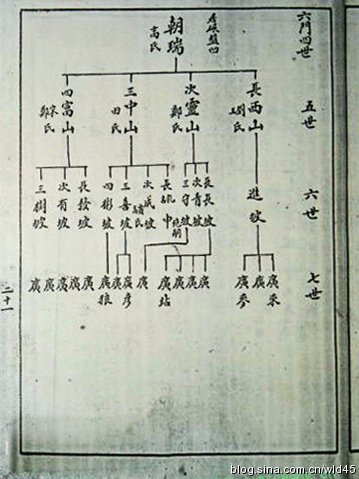 六門四世
五世
六世
七世
朝瑞
高氏
長西山
劉氏
王氏
次靈山
鄭氏
三中山
田氏
四富山
宋氏
鄭
進坡
長長坡
次青坡
三守坡
長
次成坡
三喜坡
四彬坡
長發坡
次有坡
三樹坡
廣來
廣
廣參
廣
廣
廣
廣站
廣
廣彦
廣
廣狼
廣
廣
廣
廣
二十一
blog.sina.com.cn/wld45